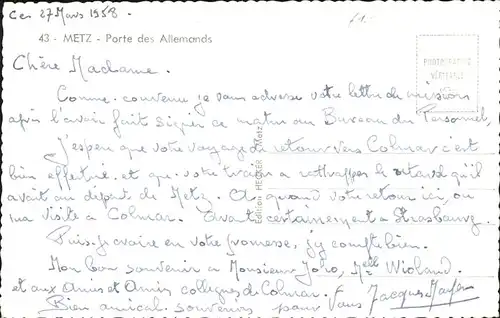 Ces 27 Mars 1958.
43 - METZ - Porte des Allemands
PHOTOGRAPHIE
VÉRITABLE
Chère Madame.
Comme convenu je vous adresse votre lettre de mission
après l'avoir fait signer ce matin au Bureau du Personnel,
j'espère que votre voyage de retour vers Colmar s'est
bien effectué et que votre train a rattrapper le retard qu'il
avait au départ de Metz. A quand votre retour ici, ou
ma visite à Colmar. Avant certainement à Strasbourg.
Puis-je croire en votre promesse, j'y compte bien.
Mon bon souvenir à Monsieur Joho, Melle Wioland
et aux Amis et Amies collègues de Colmar.
Bien amical souvenirs pour Vous Jacques
Edition HELNER Metz